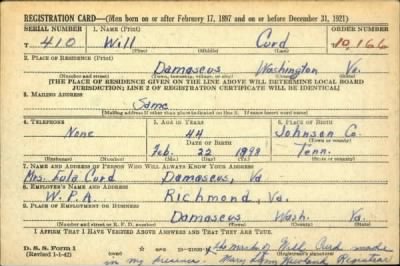 REGISTRATION CARD—(Men born on or after February 17, 1897 and on or before December 31, 1921)
SERIAL NUMBER 1. NAME (Print) ORDER NUMBER
T 410 Will Curd 10,166
(First) (Middle) (Last)
2. PLACE OF RESIDENCE (Print)
Damascus Washington Va.
(Number and street) (Town, township, village, or city) (County) (State)
[THE PLACE OF RESIDENCE GIVEN ON THE LINE ABOVE WILL DETERMINE LOCAL BOARD
JURISDICTION; LINE 2 OF REGISTRATION CERTIFICATE WILL BE IDENTICAL]
3. MAILING ADDRESS
Same
[Mailing address if other than place indicated on line 2. If same insert word same]
4. TELEPHONE 5. AGE IN YEARS 6. PLACE OF BIRTH
None 44 Johnson Co.
DATE OF BIRTH (Town or county)
Feb. 22 1898 Tenn.
(Exchange) (Number) (Mo.) (Day) (Yr.) (State or country)
7. NAME AND ADDRESS OF PERSON WHO WILL ALWAYS KNOW YOUR ADDRESS
Mrs. Lula Curd Damascus, Va
8. EMPLOYER'S NAME AND ADDRESS
W. P. A. Richmond, Va.
9. PLACE OF EMPLOYMENT OR BUSINESS
Damascus Wash. Va.
(Number and street or R. F. D. number) (Town) (County) (State)
I AFFIRM THAT I HAVE VERIFIED ABOVE ANSWERS AND THAT THEY ARE TRUE.
D. S. S. Form 1 x the mark of Will Curd made
(Revised 1-1-42) in my presence. Mary Registrar